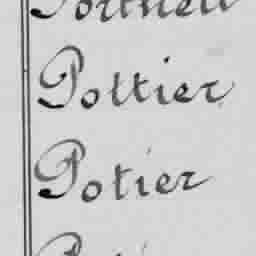 Pottier
Potier